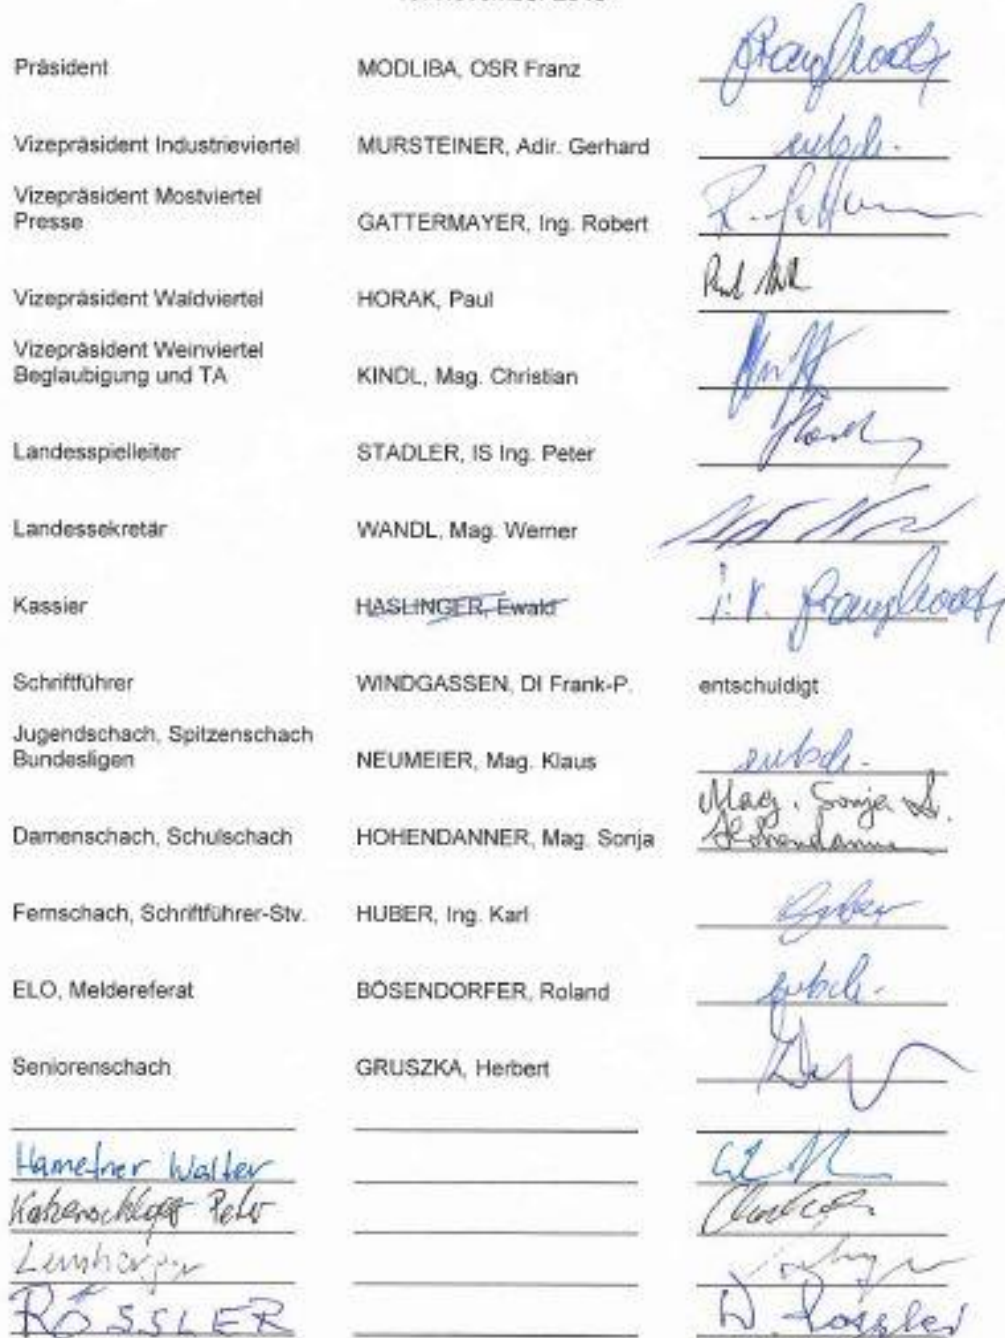 Präsident MODLIBA, OSR Franz
Vizepräsident Industrieviertel MURSTEINER, Adir. Gerhard entsch.
Vizepräsident Mostviertel
Presse GATTERMAYER, Ing. Robert
Vizepräsident Waldviertel HORAK, Paul
Vizepräsident Weinviertel
Beglaubigung und TA KINDL, Mag. Christian
Landesspielleiter STADLER, IS Ing. Peter
Landessekretär WANDL, Mag. Werner
Kassier HASLINGER, Ewald i.V.
Schriftführer WINDGASSEN, DI Frank-P. entschuldigt
Jugendschach, Spitzenschach
Bundesligen NEUMEIER, Mag. Klaus entsch.
Mag. Sonja
Damenschach, Schulschach HOHENDANNER, Mag. Sonja Hohendanner
Fernschach, Schriftführer-Stv. HUBER, Ing. Karl Huber
ELO, Meldereferat BÖSENDORFER, Roland entsch.
Seniorenschach GRUSZKA, Herbert
Hametner Walter
Peter
RÖSSLER W. Rössler